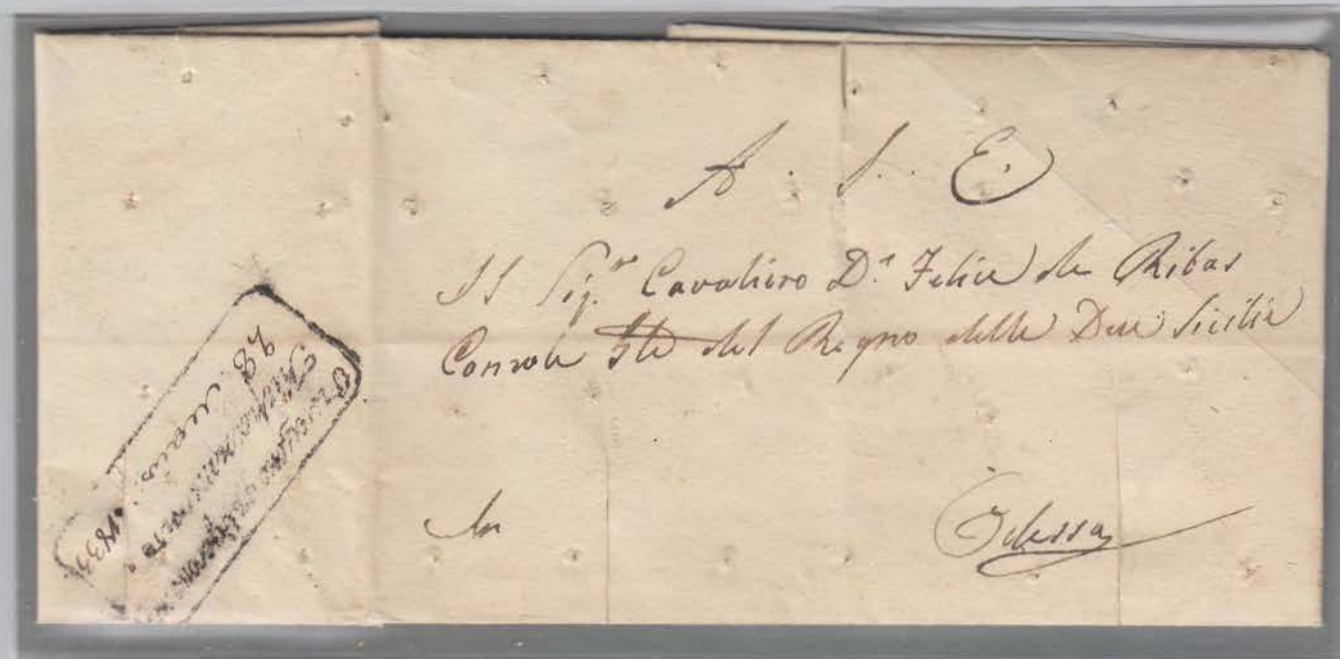 A. S. E.
Il Sig.re Cavaliero D.n Felice de Ribas
Console Gle del Regno delle Due Sicilie
In Odessa
28
1833